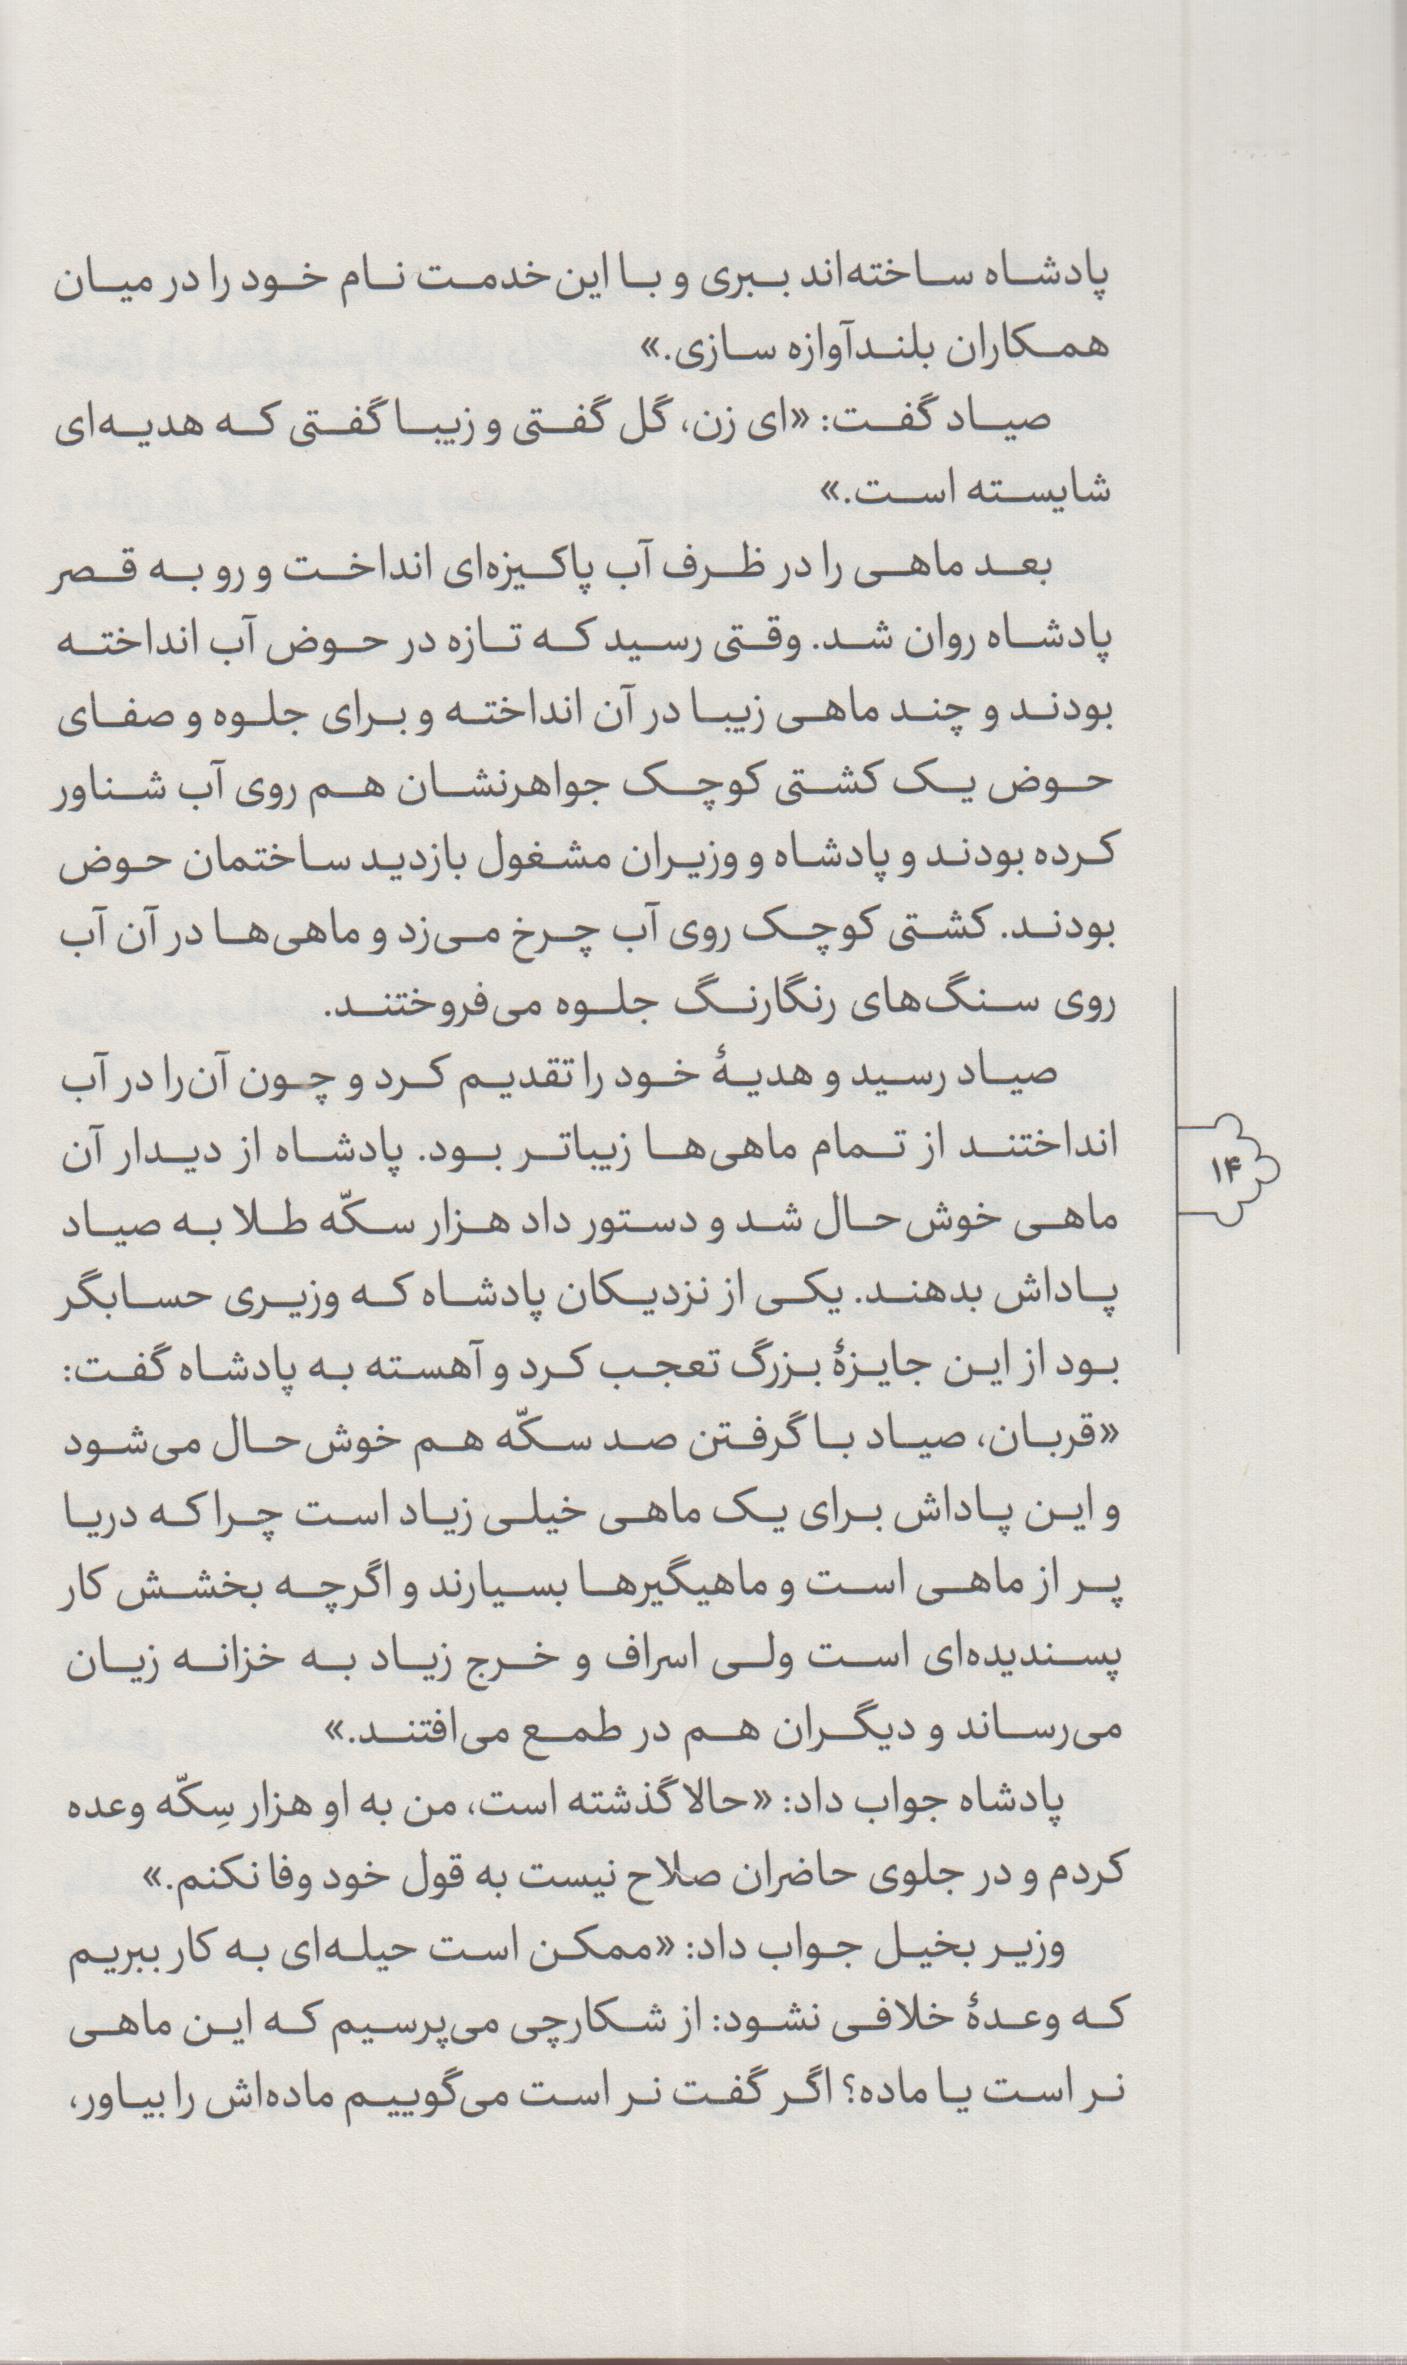 پادشاه ساخته‌اند ببری و با این خدمت نام خود را در میان
همکاران بلندآوازه سازی.»
صیاد گفت: «ای زن، گل گفتی و زیبا گفتی که هدیه‌ای
شایسته است.»
بعد ماهی را در ظرف آب پاکیزه‌ای انداخت و رو به قصر
پادشاه روان شد. وقتی رسید که تازه در حوض آب انداخته
بودند و چند ماهی زیبا در آن انداخته و برای جلوه و صفای
حوض یک کشتی کوچک جواهرنشان هم روی آب شناور
کرده بودند و پادشاه و وزیران مشغول بازدید ساختمان حوض
بودند. کشتی کوچک روی آب چرخ می‌زد و ماهی‌ها در آن آب
روی سنگ‌های رنگارنگ جلوه می‌فروختند.
صیاد رسید و هدیهٔ خود را تقدیم کرد و چون آن‌را در آب
انداختند از تمام ماهی‌ها زیباتر بود. پادشاه از دیدار آن
ماهی خوش‌حال شد و دستور داد هزار سکّه طلا به صیاد
پاداش بدهند. یکی از نزدیکان پادشاه که وزیری حسابگر
بود از این جایزهٔ بزرگ تعجب کرد و آهسته به پادشاه گفت:
«قربان، صیاد با گرفتن صد سکّه هم خوش‌حال می‌شود
و این پاداش برای یک ماهی خیلی زیاد است چرا که دریا
پر از ماهی است و ماهیگیرها بسیارند و اگرچه بخشش کار
پسندیده‌ای است ولی اسراف و خرج زیاد به خزانه زیان
می‌رساند و دیگران هم در طمع می‌افتند.»
پادشاه جواب داد: «حالا گذشته است، من به او هزار سِکّه وعده
کردم و در جلوی حاضران صلاح نیست به قول خود وفا نکنم.»
وزیر بخیل جواب داد: «ممکن است حیله‌ای به کار ببریم
که وعدهٔ خلافی نشود: از شکارچی می‌پرسیم که این ماهی
نر است یا ماده؟ اگر گفت نر است می‌گوییم ماده‌اش را بیاور،
۱۴